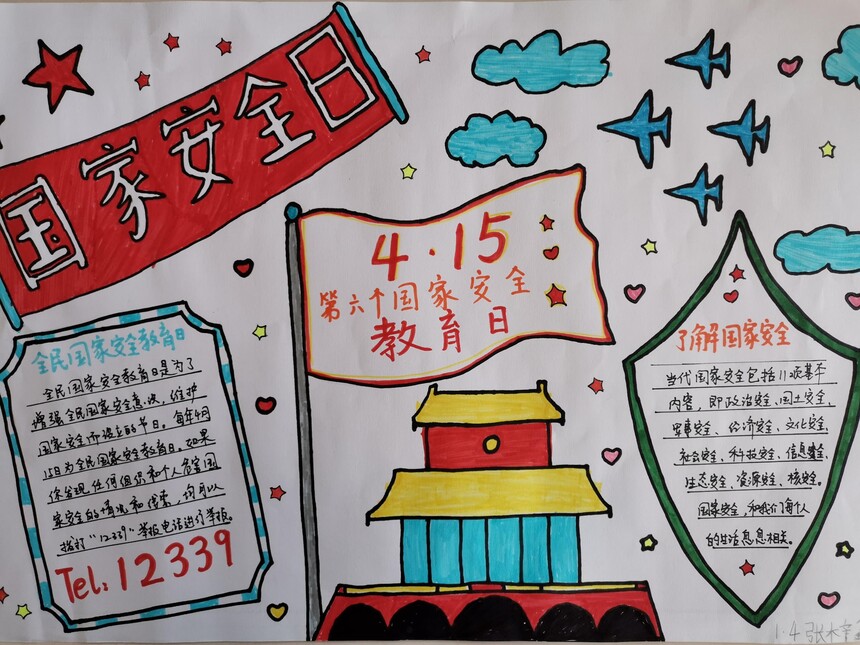 国家安全日
4·15
第六个国家安全
教育日
全民国家安全教育日
全民国家安全教育日是为了
增强全民国家安全意识，维护
国家安全而设立的节日。每年4月
15日为全民国家安全教育日。如果
你发现任何组织和个人危害国
家安全的情况和线索，均可以
拨打“12339”举报电话进行举报。
Tel：12339
了解国家安全
当代国家安全包括11项基本
内容，即政治安全、国土安全、
军事安全、经济安全、文化安全、
社会安全、科技安全、信息安全、
生态安全、资源安全、核安全。
国家安全，和我们每个人
的生活息息相关。
1·4 张木